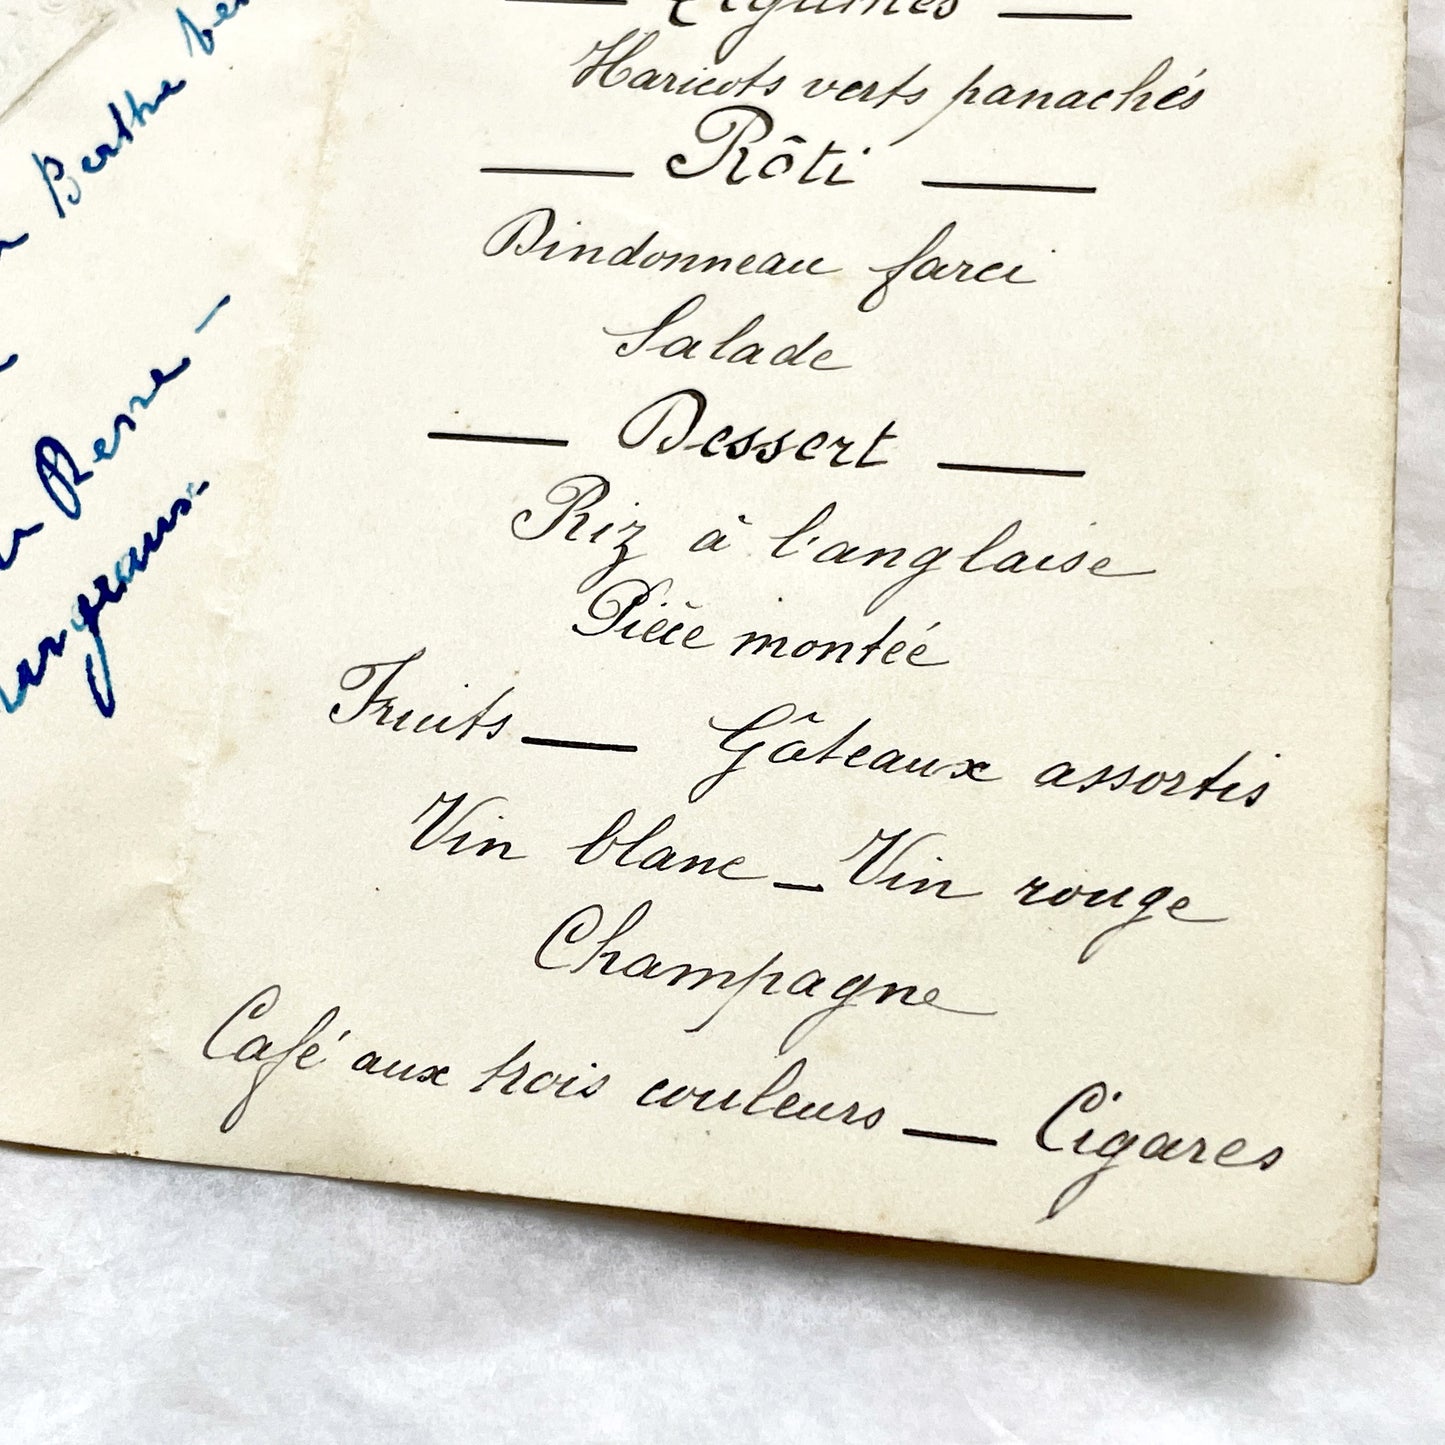 Légumes
Haricots verts panachés
Rôti
Dindonneau farci
Salade
Dessert
Riz à l'anglaise
Pièce montée
Fruits — Gâteaux assortis
Vin blanc — Vin rouge
Champagne
Café aux trois couleurs — Cigares
Berthe